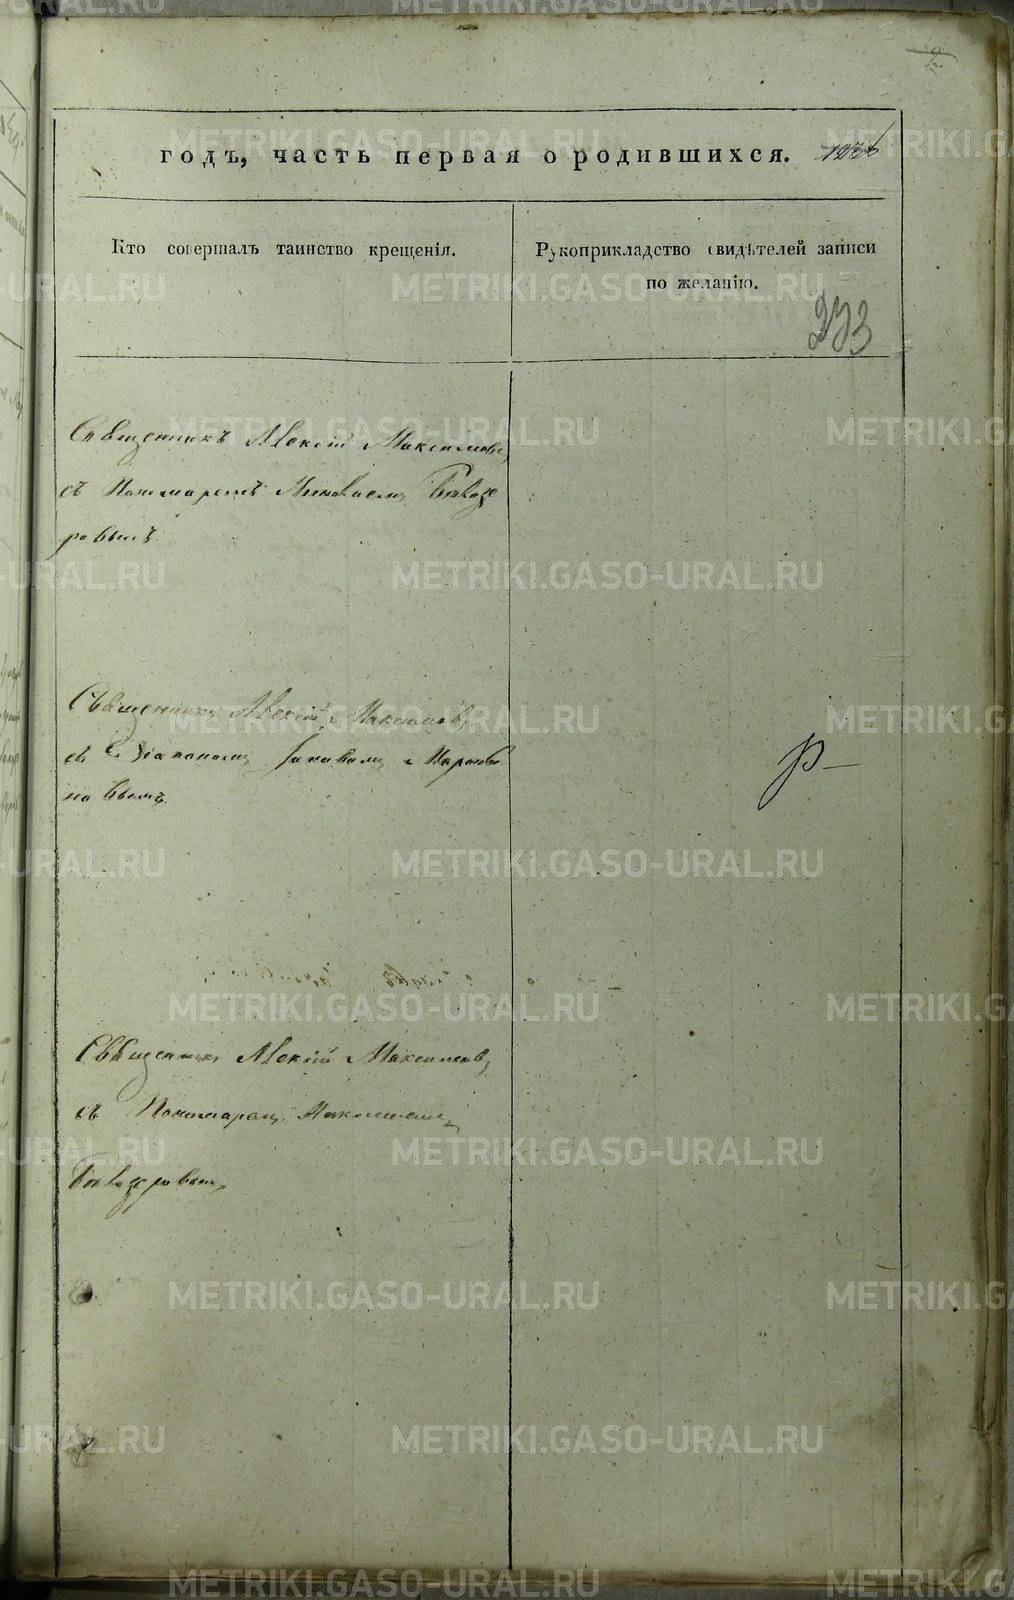 годъ, часть первая о родившихся.
Кто совершалъ таинство крещенія.
Рукоприкладство свидѣтелей записи
по желанію.
273
Священникъ Алексій Максимовъ
съ Пономаремъ Николаемъ
ровымъ.
Священникъ Алексій Максимовъ
съ Діакономъ Іаковомъ
новымъ
Священникъ Алексій Максимовъ
съ Пономаремъ Николаемъ
METRIKI.GASO-URAL.RU